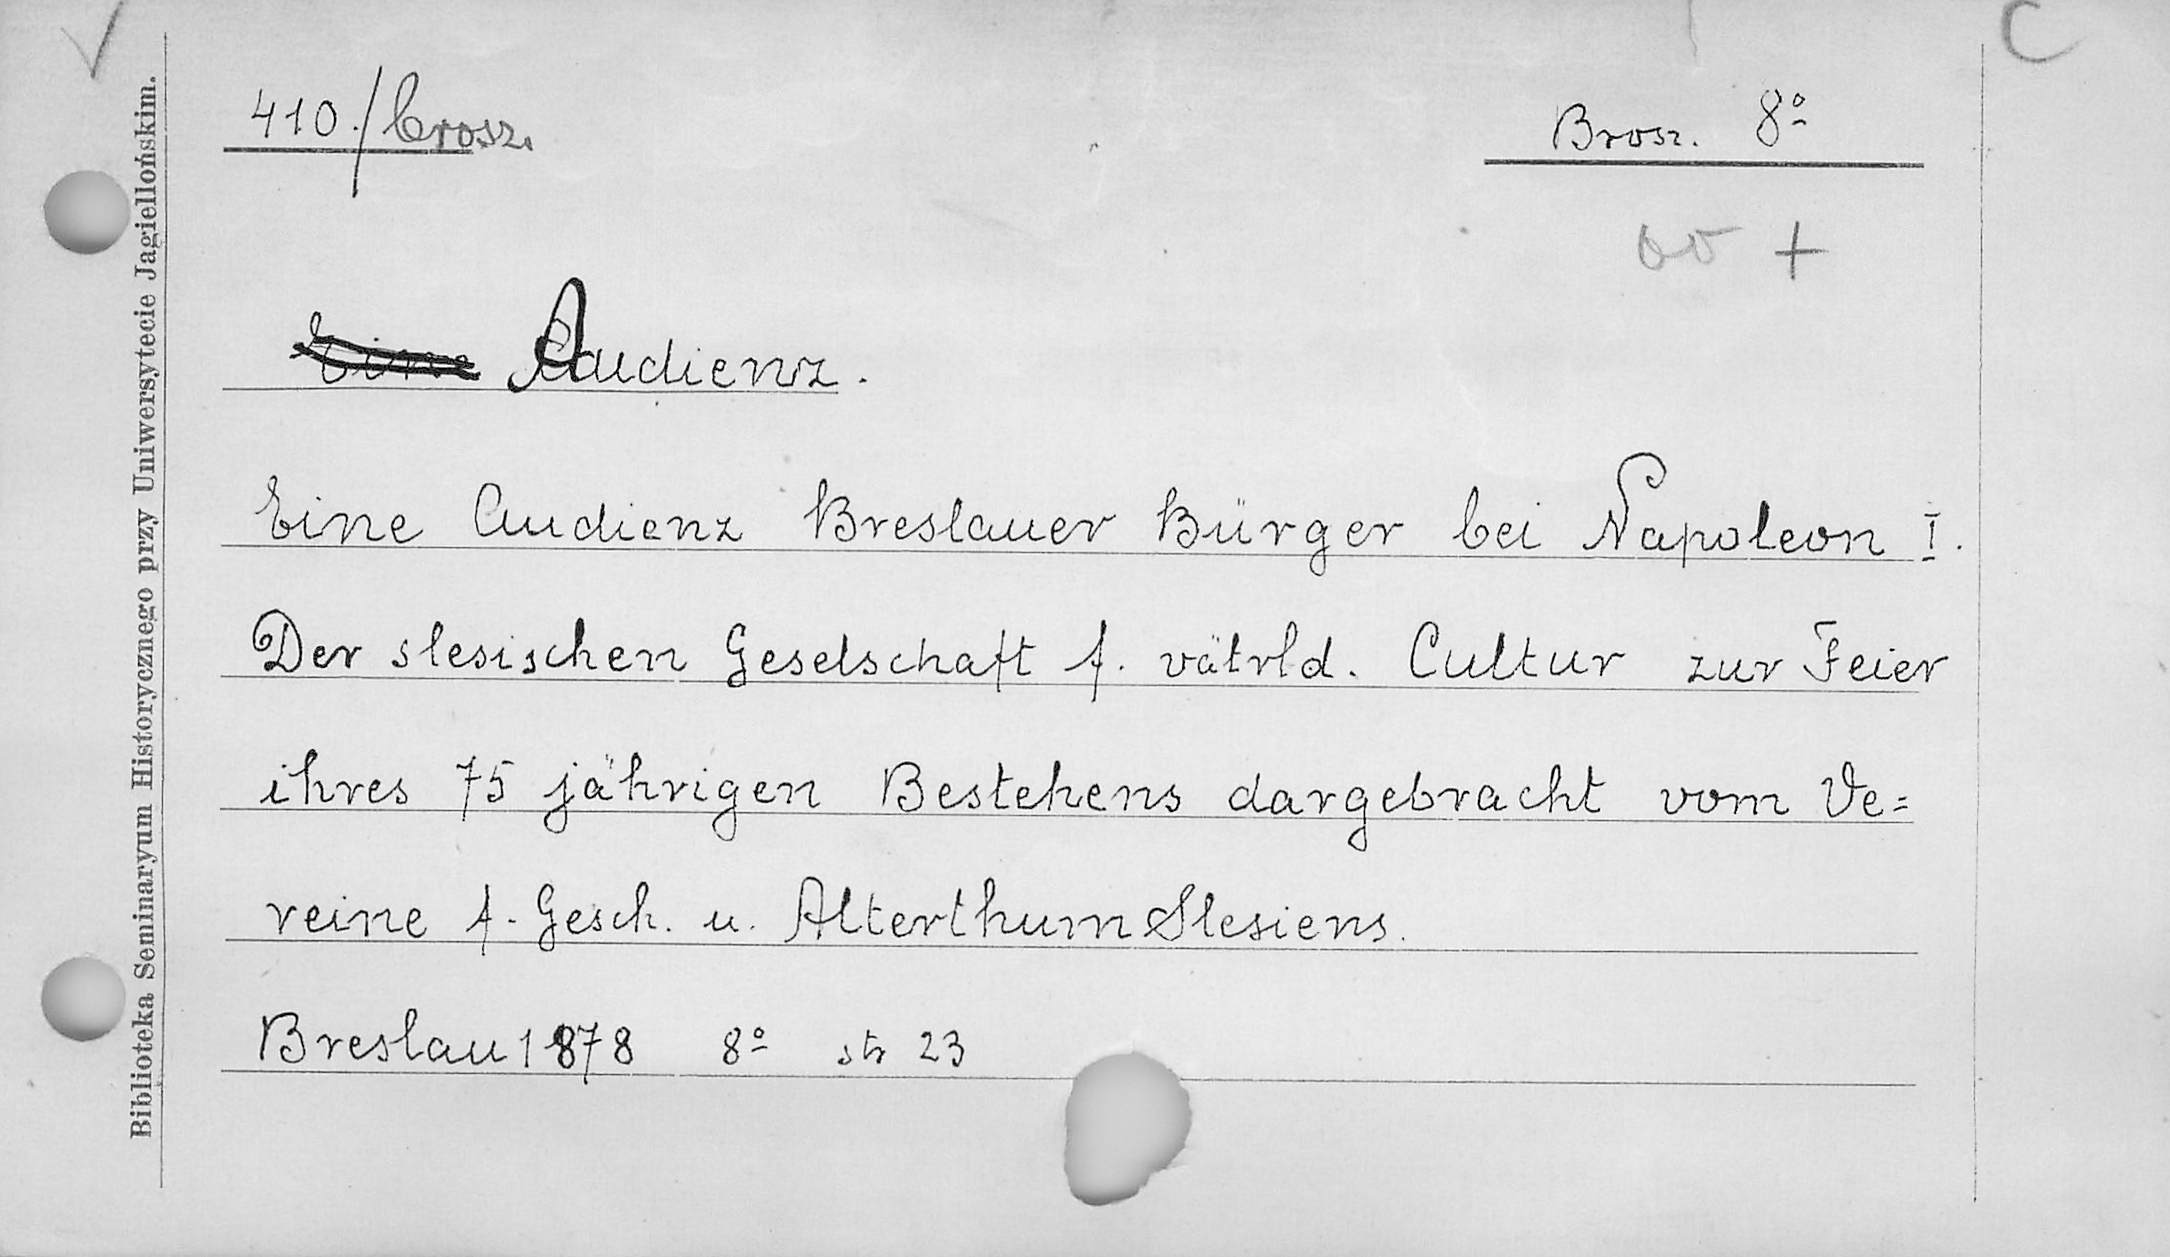 C
410./brosz. Brosz. 8º
+
Eine Audienz.
Eine Audienz Breslauer Bürger bei Napoleon I.
Der slesischen Geselschaft f. vätrld. Cultur zur Feier
ihres 75 jährigen Bestehens dargebracht vom Ve=
reine f. Gesch. u. Alterthum Slesiens.
Breslau 1878 8º str 23
Biblioteka Seminaryum Historycznego przy Uniwersytecie Jagiellońskim.